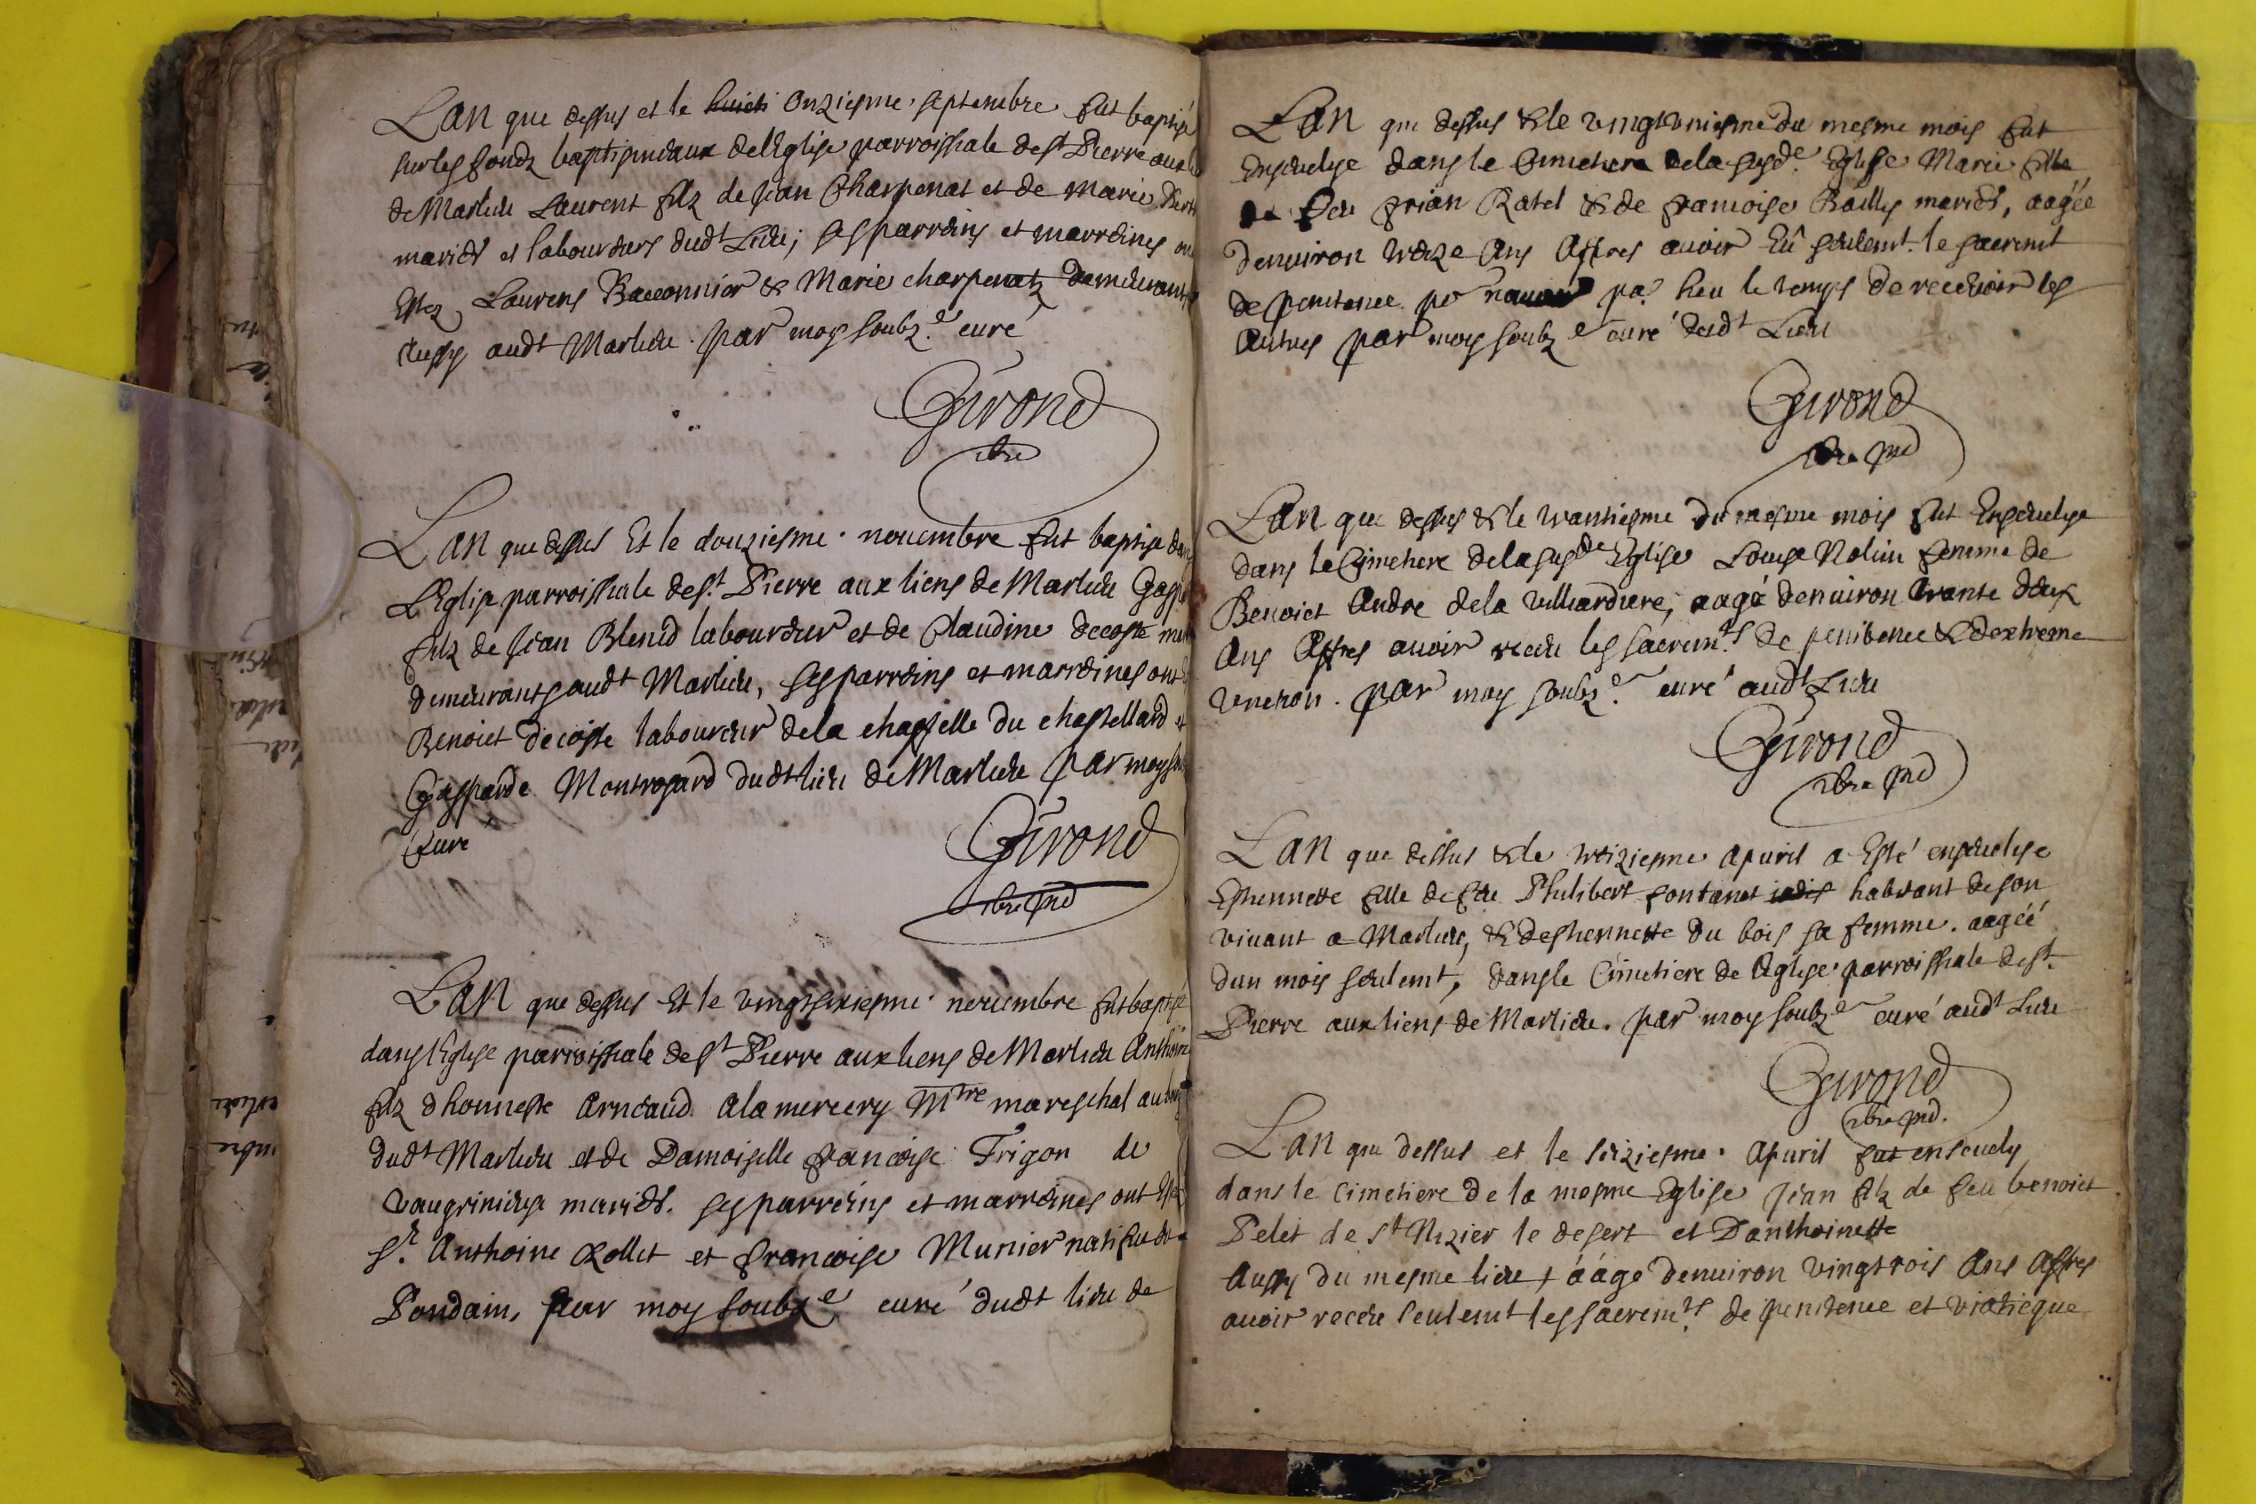 Lan que dessus et le huicti onziesme septembre fut baptisé
sur les fondz baptismeaux de lEglise parroissiale de st Pierre aux
de Marlieu Laurent filz de Jean Charpenat et de Marie
mariés et laboureurs dudt Lieu; ses parreins et marreines
Estez Laurens Baconnier & Marie charpenatz demeurants
aussy audt Marlieu. par moy soubz.e curé
Girond
Lan que dessus Et le douziesme novembre fut baptisé dans
LEglise parroissiale de st Pierre aux liens de Marlieu
filz de Jean Blend laboureur et de Claudine decoste
demeurants audt Marlieu, ses parreins et marreines ont
Benoict decoste laboureur de la chapelle du chastellard et
Gasparde Montrosard dudt lieu de Marlieu par moy
Curé
Girond
Lan que dessus Et le vingtsixiesme novembre fut baptisé
dans lEglise parroissiale de st Pierre aux liens de Marlieu Anthoine
filz dhonneste Arneaud Alamercery Mtre mareschal au
dudt Marlieu et de Damoiselle francoise Trigon de
Vaugrinieuse mariés. ses parreins et marreines ont Estez
sr. Anthoine Rollet et francoise Munier natifue de
Pondain, par moy soubze curé dudt lieu de
Lan que dessus & le vingtuniesme du mesme mois fut
Ensevelye dans le Cimetiere de la susde. Eglise Marie fille
de feu frian Ratel & de francoise Bailly mariés, aagée
denuiron treize Ans Apres auoir Eû seulemt. le sacremt
de penitence pr nauoir pas heu le temps de recebuoir les
Autres par moy soubze curé dudt Lieu
Girond
Lan que dessus & le trantiesme du mesme mois fut Ensevelye
dans le Cimetiere de la susde Eglise Louise Nolin femme de
Benoict Andre de la villiardiere, aagé denuiron trante deux
Ans Apres auoir receu les sacremts. de penitence & dextreme
unction. par moy soubz.e curé audt Lieu
Girond
Lan que dessus & le treiziesme apuril a Esté ensevelye
Estiennette fille de feu Philibert fontanet iadis habitant de son
viuant a Marlieu, & destiennette du bois sa femme. aagéé
dun mois seulemt, dans le Cimetiere de lEglise parroissiale de st.
Pierre aux liens de Marlieu. par moy soubze curé audt Lieu
Girond
Lan que dessus et le seiziesme Apuril fut ensevely
dans le cimetiere de la mesme Eglise Jean filz de feu benoict
Pelet de st Nizier le desert et Danthoinette
Aussy du mesme lieu, áágé denuiron vingtrois Ans Apres
auoir receu seulemt les sacremts. de penitence et viaticque